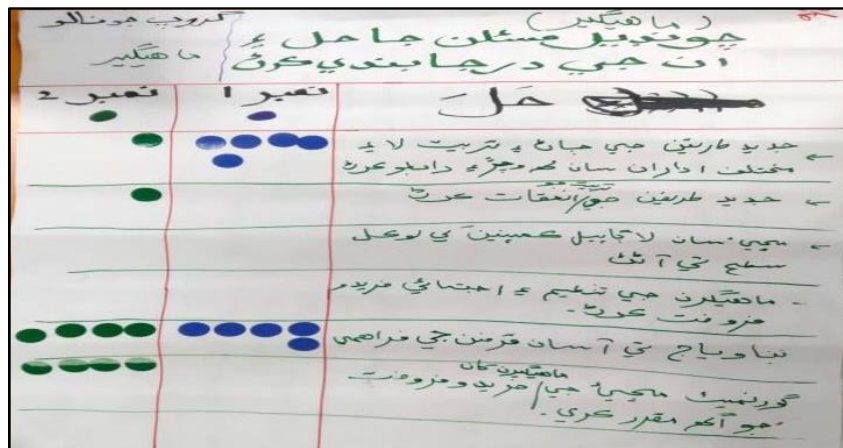 گروپ جو نالو
ماهيگير
(ماهيگير)
چونڊيل مسئلن جا حل ۽
ان جي درجابندي ڪرڻ
حَلَ
نمبر 1
نمبر 2
جديد طريقن جي ڄاڻ ۽ تربيت لاءِ
مختلف ادارن سان ۽ رابطو ڪرڻ
جديد طريقن جو انعقاد ڪرڻ
مڇي سان لاڳاپيل ڪمپنين کي لوڪل
سطح تي آڻڻ
ماهيگيرن جي تنظيم ۽ اجتمائي خريد و
فروخت ڪرڻ.
بنا وياج تي آسان قرضن جي فراهمي
ماهيگيرن کان
گورنمينٽ مڇيءَ جي خريد و فروخت
جو اگهه مقرر ڪري.